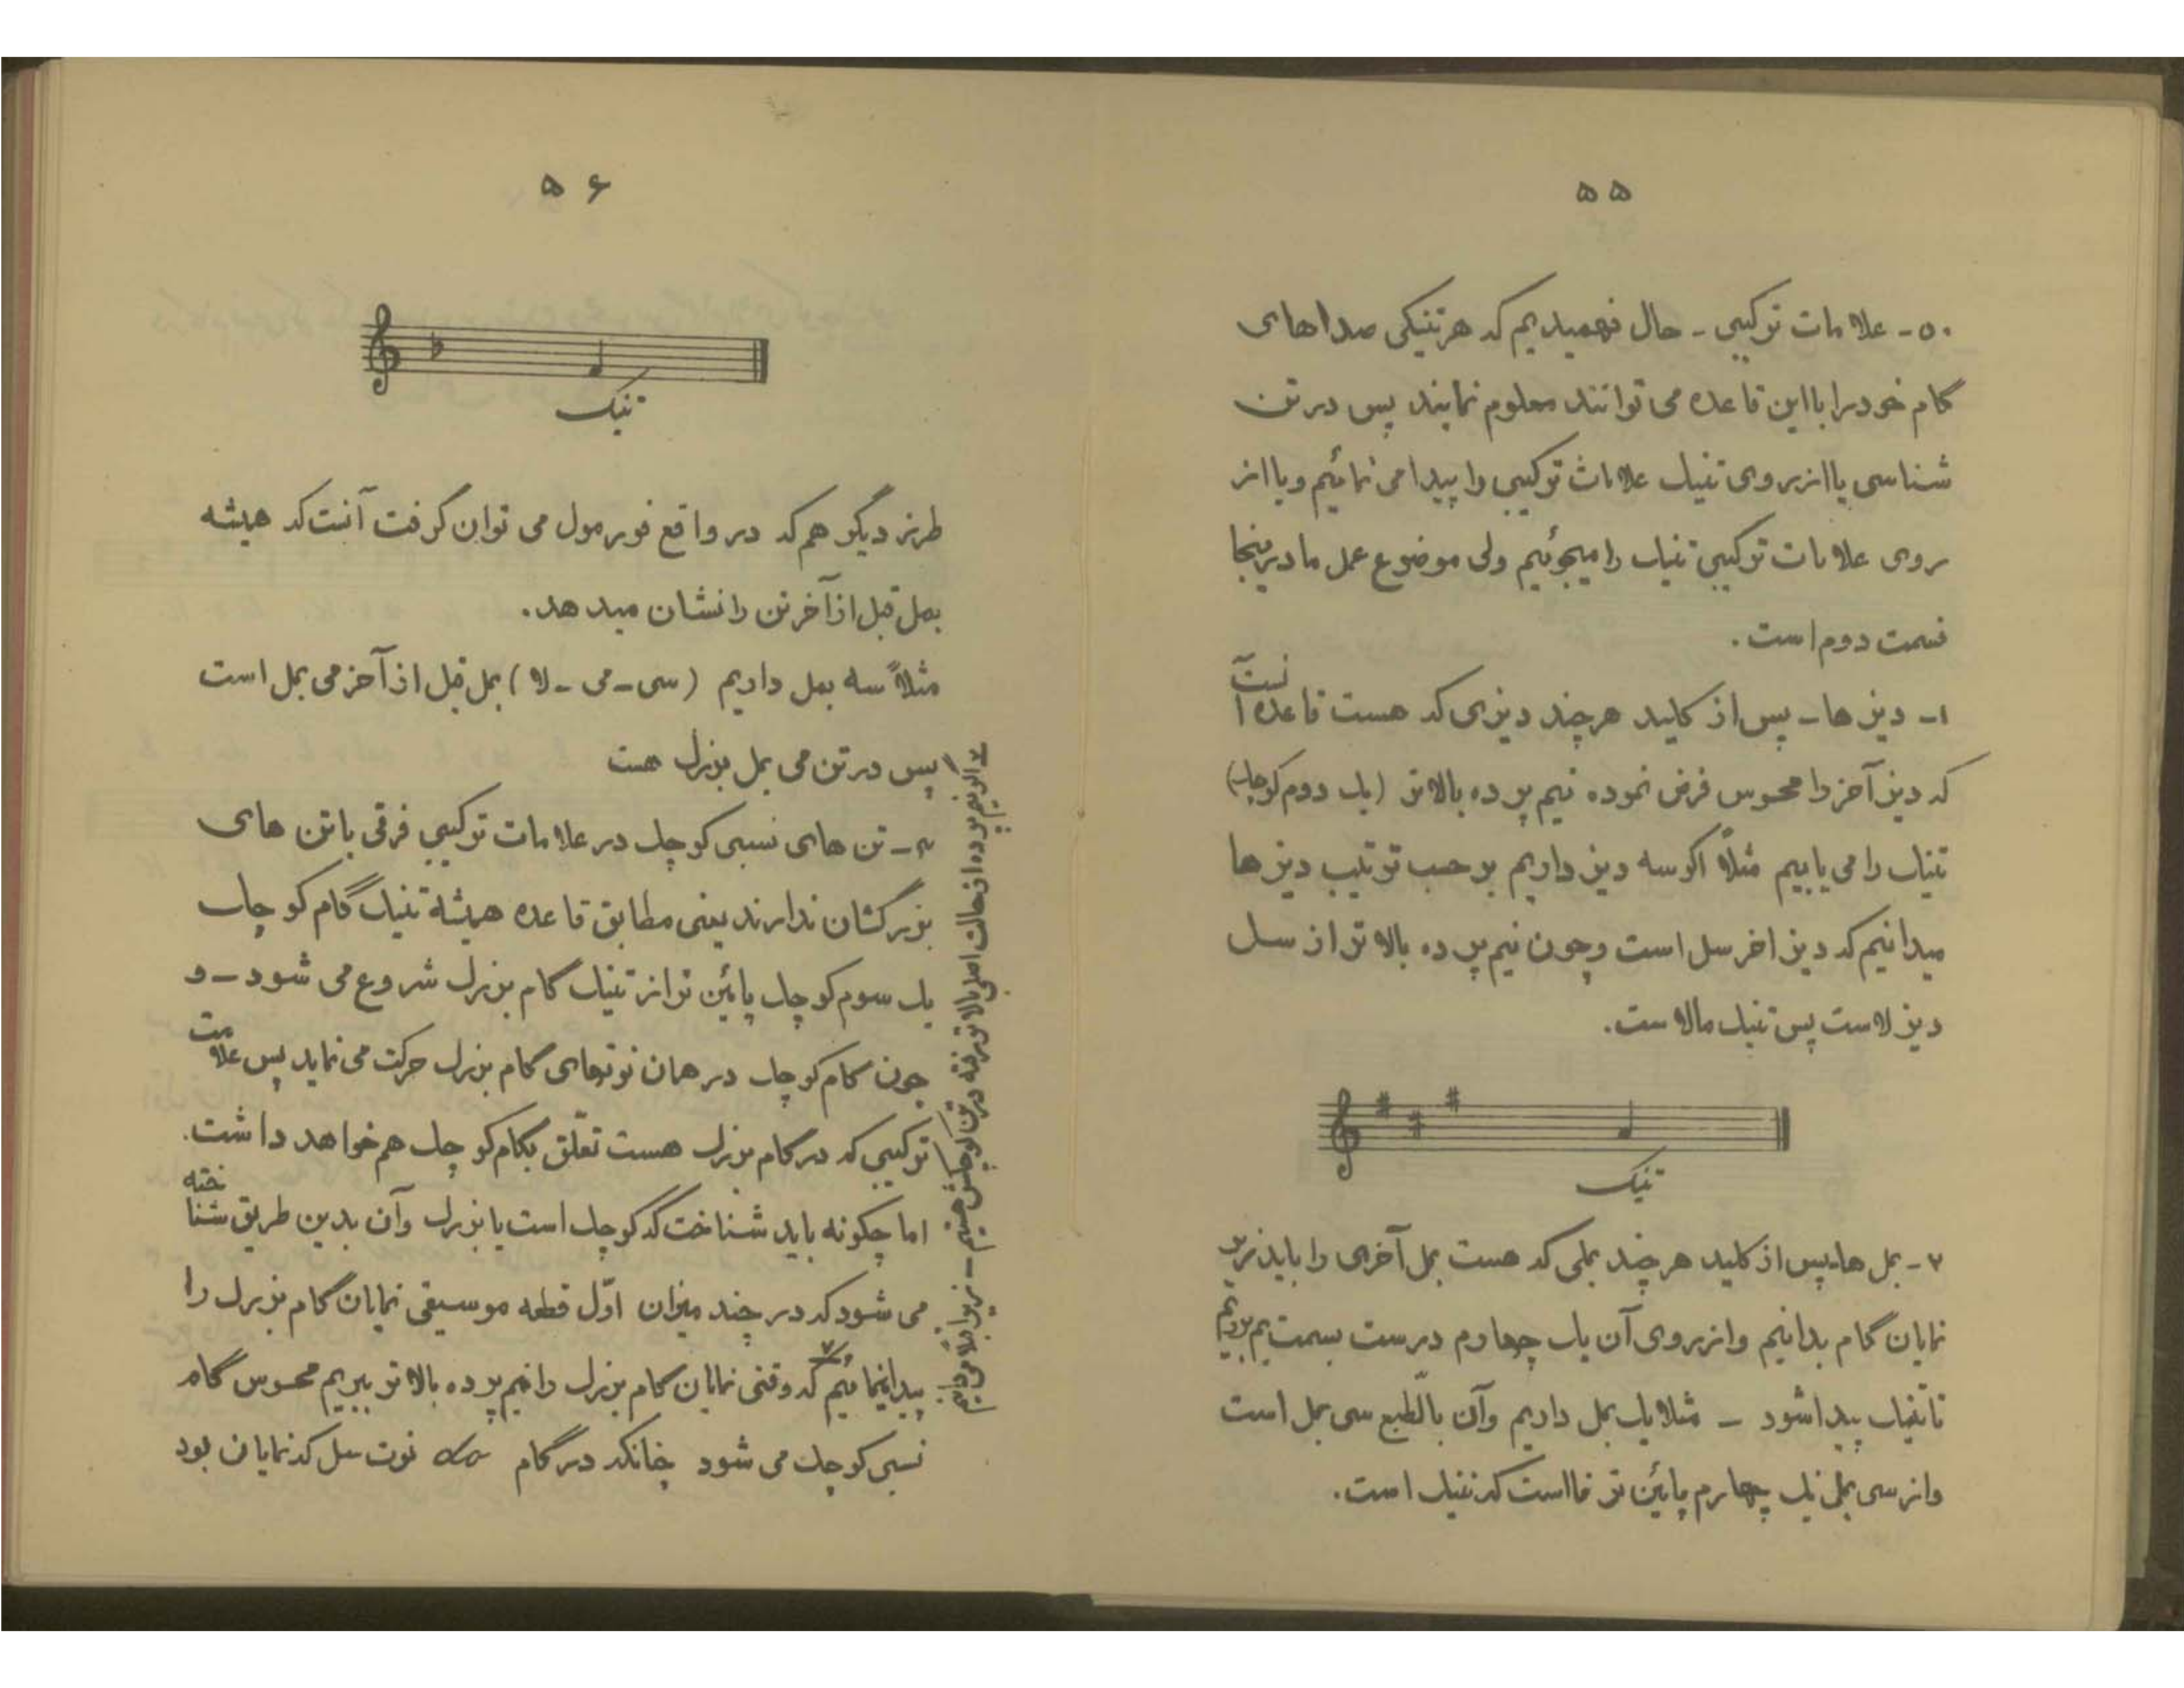 ۵۵
۵۰- علامات ترکیبی - حال فهمیدیم که هرتنیکی صداهای
گام خودرا بااین قاعده می توانند معلوم نمایند پس در تن
شناسی یااز روی تنیک علامات ترکیبی را پیدا می نمائیم ویااز
روی علامات ترکیبی تنیک را میجوئیم ولی موضوع عمل مادراینجا
قسمت دوم است .
۱- دیزها - پس از کلید هرچند دیزی که هست قاعده آنست
که دیز آخر را محسوس فرض نموده نیم پرده بالاتر (یک دوم کوچک)
تنیک را می یابیم مثلاً اگرسه دیز داریم برحسب ترتیب دیزها
میدانیم که دیز اخر سل است وچون نیم پرده بالاتر از سل
دیز لاست پس تنیک مالاست.
تنیک
۲- بمل هاپس از کلید هرچند بملی که هست بمل آخری را باید زیر
نمایان گام بدانیم واز روی آن یک چهارم درست بسمت بم برویم
تاتنیک پیداشود - مثلا یک بمل داریم وآن بالطبع سی بمل است
واز سی بمل یک چهارم پائین تر فااست که تنیک است.
۵۶
تنیک
طرز دیگر هم که در واقع فورمول می توان گرفت آنست که همیشه
بمل قبل از آخر تن را نشان میدهد.
مثلاً سه بمل داریم (سی - می - لا) بمل قبل از آخر می بمل است
پس در تن می بمل بزرگ هست
۳- تن های نسبی کوچک در علامات ترکیبی فرقی باتن های
بزرگشان ندارند یعنی مطابق قاعده همیشه تنیک گام کوچک
یک سوم کوچک پائین تر از تنیک گام بزرگ شروع می شود - و
چون گام کوچک در همان نوتهای گام بزرگ حرکت می نماید پس علامت
ترکیبی که در گام بزرگ هست تعلّق بگام کوچک هم خواهد داشت.
اما چگونه باید شناخت که کوچک است یا بزرگ وآن بدین طریق شناخته
می شود که در چند میزان اوّل قطعه موسیقی نمایان گام بزرگ را
پیدانمائیم که وقتی نمایان گام بزرگ را نیم پرده بالاتر ببریم محسوس گام
نسبی کوچک می شود چنانکه در گام نوت سل که نمایان بود
اگر نیم پرده از حالت اصلی بالاتر رفته در تن کوچکش هستیم - زیرا قبلا می دانیم